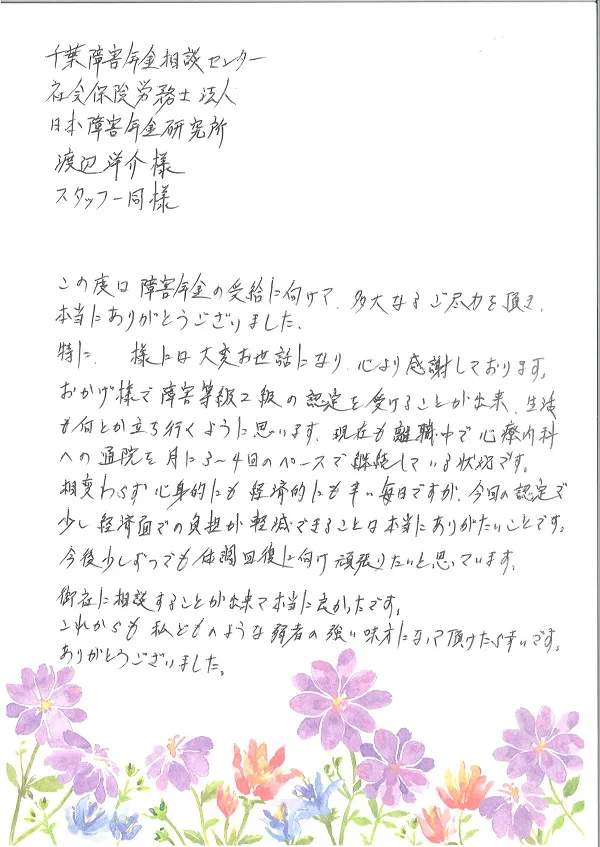 千葉障害年金相談センター
社会保険労務士法人
日本障害年金研究所
渡辺洋介様
スタッフ一同様
この度は障害年金の受給に向けて、多大なるご尽力を頂き、
本当にありがとうございました。
特に、 様には大変お世話になり、心より感謝しております。
おかげ様で障害等級2級の認定を受けることが出来、生活
も何とか立ち行くように思います。現在も離職中で心療内科
への通院を月に3～4回のペースで継続している状況です。
相変わらず心身的にも経済的にも辛い毎日ですが、今回の認定で
少し経済面での負担が軽減できることは本当にありがたいことです。
今後少しずつでも体調回復に向け頑張りたいと思っています。
御社に相談することが出来て本当に良かったです。
これからも私どものような弱者の強い味方になって頂けたら幸いです。
ありがとうございました。